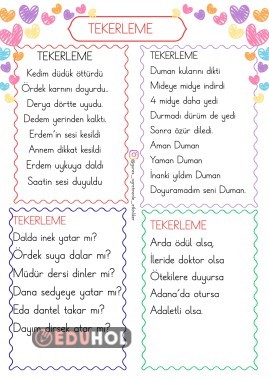 TEKERLEME
TEKERLEME
Kedim düdük öttürdü
Ördek karnını doyurdu.
Derya dörtte uyudu.
Dedem yerinden kalktı.
Erdem'in sesi kesildi
Annem dikkat kesildi
Erdem uykuya daldı
Saatin sesi duyuldu
TEKERLEME
Duman kulanını dikti
Mideye midye indirdi
4 midye daha yedi
Durmadı dürüm de yedi
Sonra özür diledi.
Aman Duman
Yaman Duman
İnanki yıldım Duman
Doyuramadım seni Duman.
TEKERLEME
Dalda inek yatar mı?
Ördek suya dalar mı?
Müdür dersi dinler mi?
Dana sedyeye yatar mı?
Eda dantel takar mı?
Dayım dirsek atar mı?
EDUHOL
TEKERLEME
Arda ödül olsa,
İleride doktor olsa
Ötekilere duyursa
Adana'da otursa
Adaletli olsa.